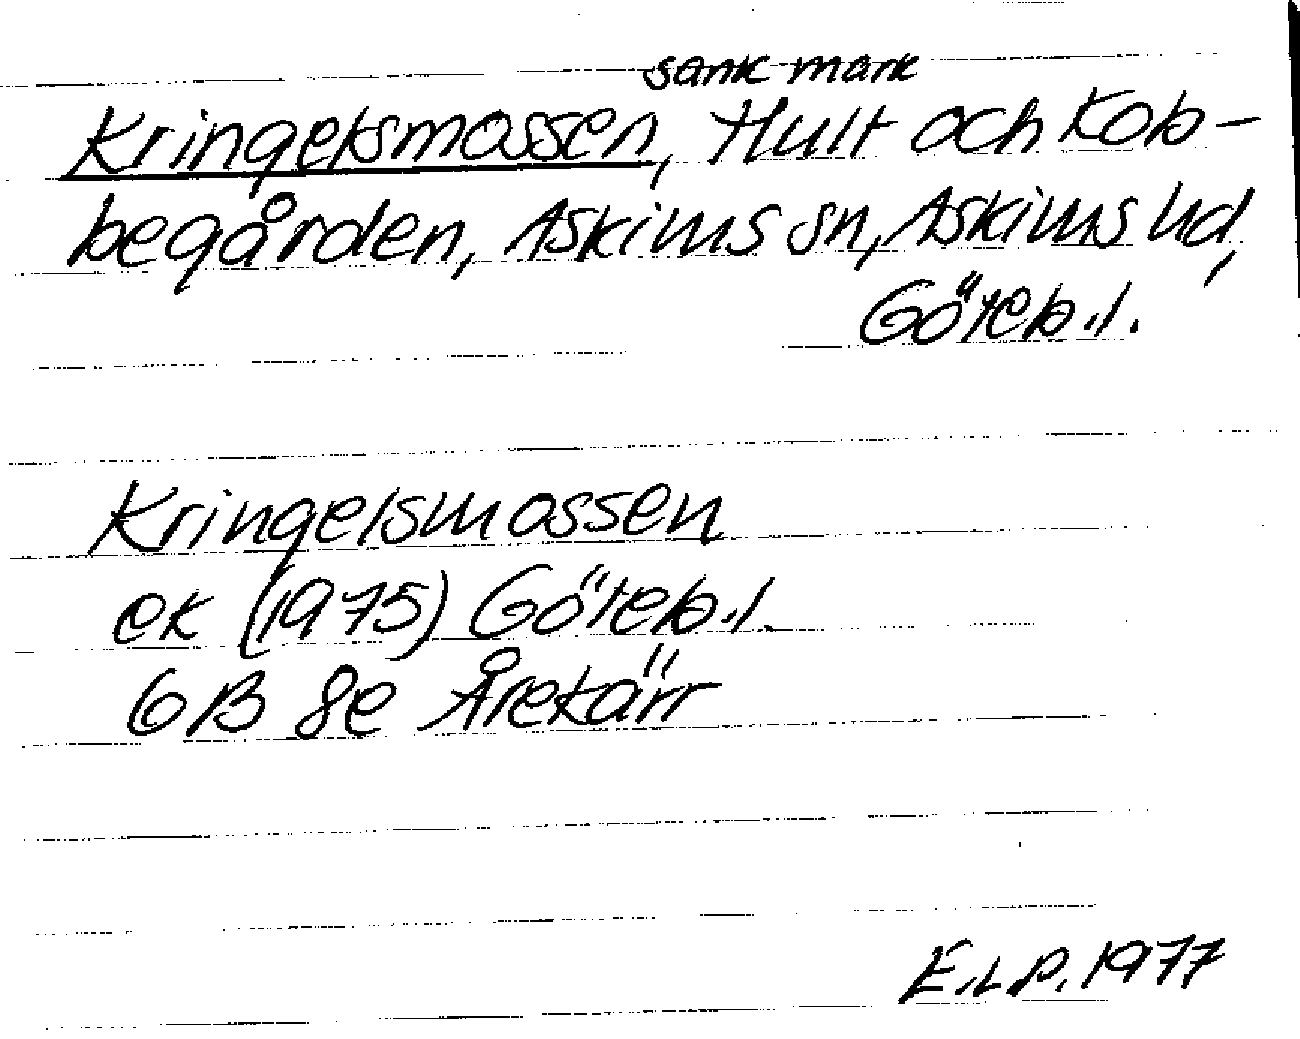 sank mark
Kringelsmossen, Hult och Kob-
begården, Askims sn, Askims hd,
Göteb.l.
Kringelsmossen
ek (1975) Göteb.l.
6B 8e Årekärr
E.L.P. 1977